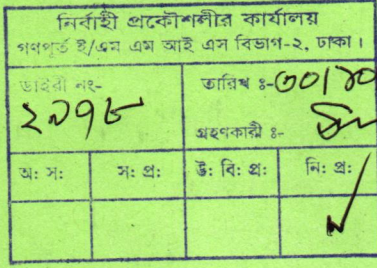 নির্বাহী প্রকৌশলীর কার্যালয়
গণপূর্ত ই/এম এম আই এস বিভাগ-২, ঢাকা।
ডাইরী নং- তারিখ ঃ-৩০/১০
২৯৭৮
গ্রহণকারী ঃ-
অ: স: স: প্র: উ: বি: প্র: নি: প্র: